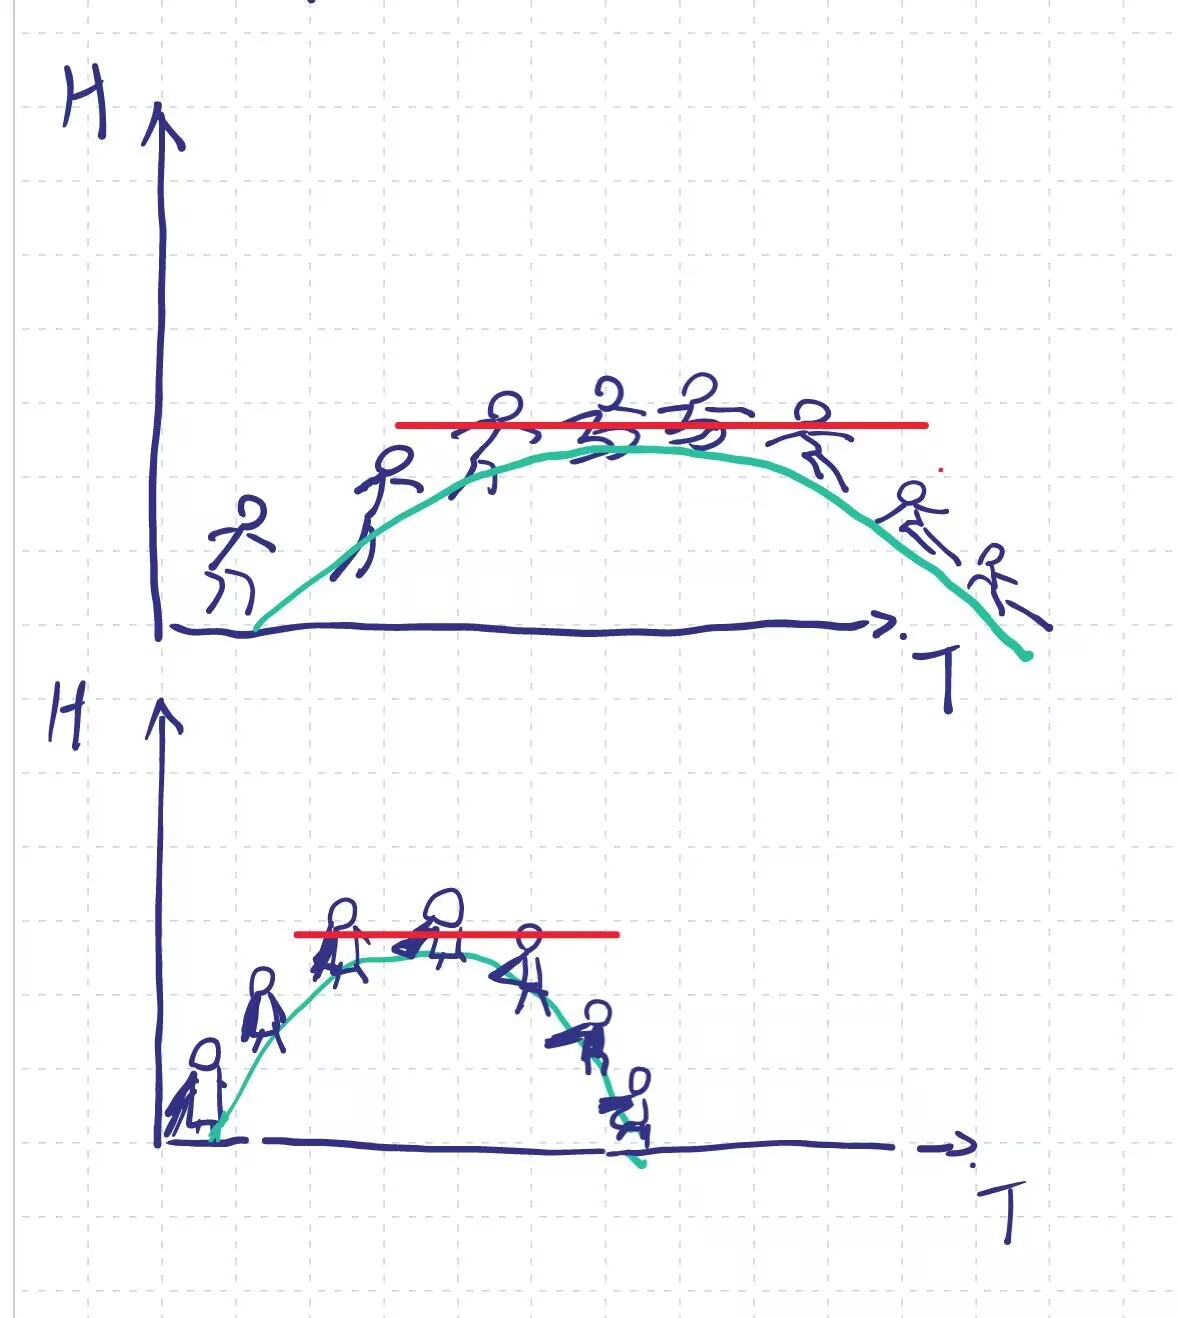 H
T
H
T